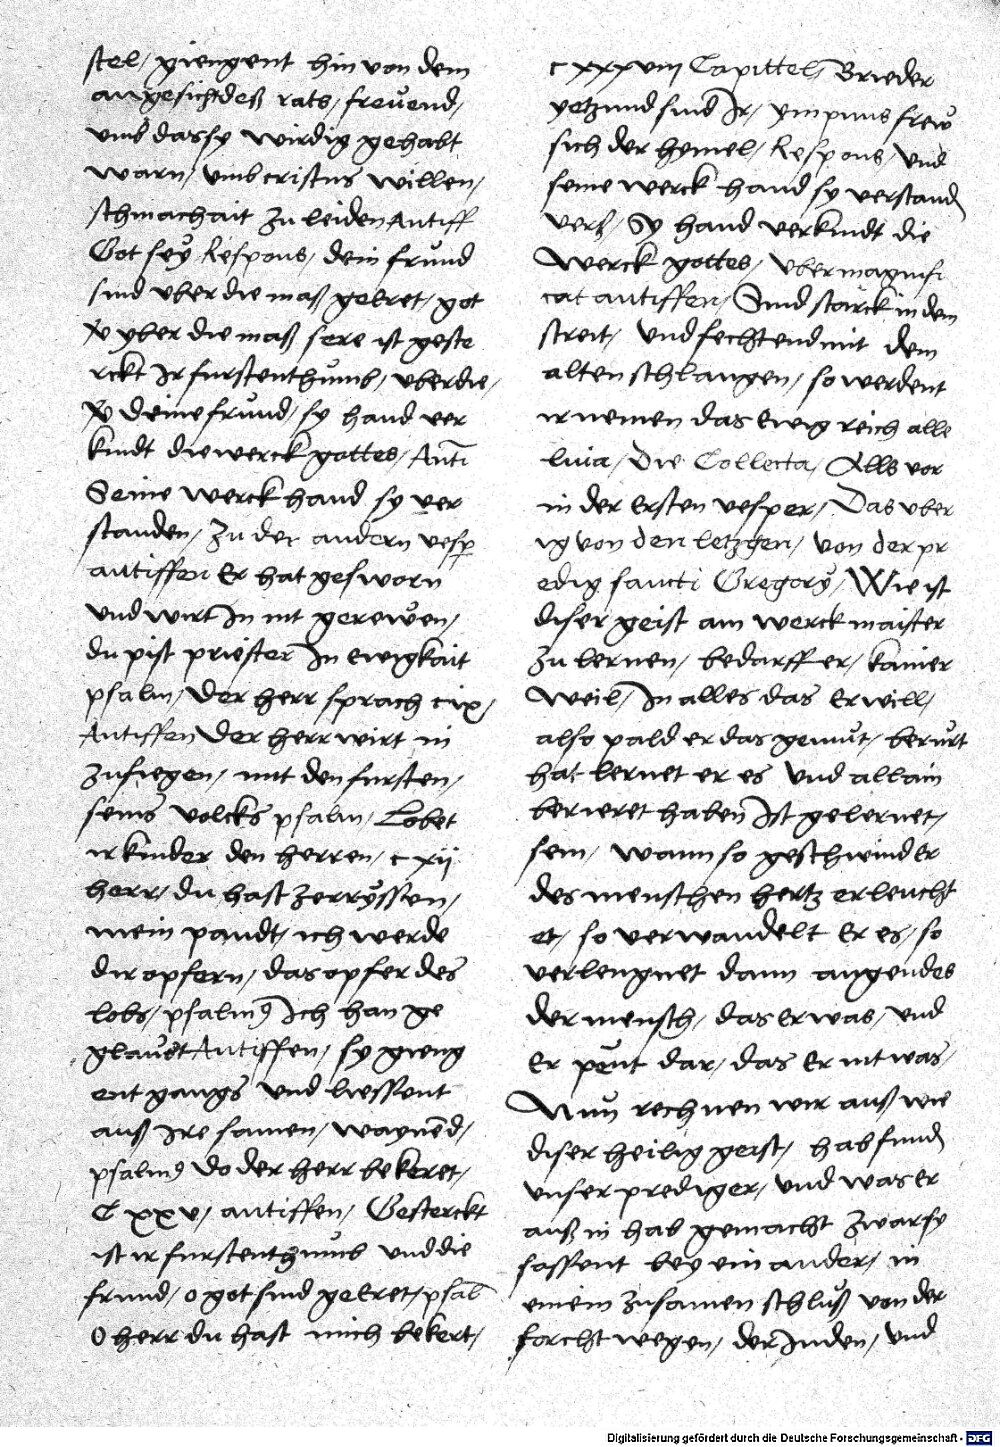 stel / giengent hin von dem
angesicht deß rats / freuend /
umb das sy wirdig gehabt
warn / umb cristus willen /
schmachait zu leiden Antiff
Got sey Respons / dein frund
sind uber die maß geeret / got
yber die maß sere ist geste
rckt Ir furstenthumb / uber die /
deine frund / sy hand ver
kindt die werck gottes / Anti
Seine werck hand sy ver
standen / Zu der andern vesp
antiffen Er hat gesworn
und wirt In nit gerewen /
du pist priester In ewigkait
psalm / Der herr sprach cix /
Antiffen Der herr wirt in
zufiegen / mit den fursten /
seins volcks psalm / Lobet
ir kinder den herren / c xij
herr / du hast zerryssen /
mein pandt / ich werde
dir opfern / das opfer des
lobs / psalmꝰ Ich han ge
glaubt Antiffen / sy gieng
ent gangs und liessent
auß Ire samen / waynēd /
psalmꝰ do der herr bekeret /
C xxv / antiffen / Gesterckt
ist ir furstenthumb und die
frund / o got sind geeret / psal
O herr du hast mich bekert /
c xxxviij Capittel / Brieder
yetzund sind Ir / ympnus frew
sich der hymel / Respons / und
seine werck hand sy verstand
verß / Sy hand verkindt die
Werck gottes / uber magnifi
cat antiffen / Sind starck in dem
streit / und fechtend mit dem
alten schlangen / so werdent
ir nemen das Ewig reich alle
luia / Die Collecta / Alls vor
in der Ersten vesper / Das uber
ig von den letzgen / von der pr
edig sancti Gregory / Wie ist
diser geist am werckmaister
Zu lernen / bedarff er / kainer
Weil / In alles das Er will /
also pald er das gemut / berurt
hat lernet er es und allain
berieret haben Ist gelernet /
sein / wann so geschwind Er
des menschen hertz erleucht
et / so verwandelt Er es / so
verlengnet dann angendes
der mensch / das Er was / und
Er peut dar / das Er nit was /
Nun rechnen wir auß wie
diser heilig geist / hab fund
unser prediger / und was er
auß in hab gemacht Zwar sy
sassent bey ein ander / in
einem zusamen schluß von der
forcht wegen / der Juden / und
Digitalisierung gefördert durch die Deutsche Forschungsgemeinschaft - DFG